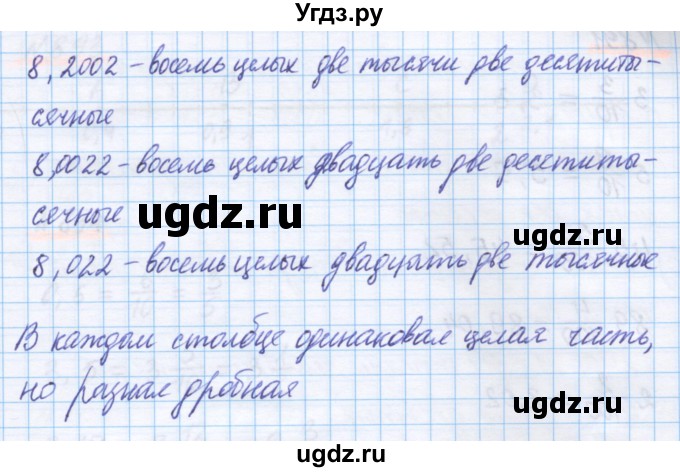 Угдз.ру
8,2002 – восемь целых две тысячи две десятиты-
сячные
8,0022 – восемь целых двадцать две десятиты-
сячные
ugdz.ru
ugdz.ru
8,022 – восемь целых двадцать две тысячные
В каждом столбце одинаковая целая часть,
но разная дробная
ugdz.ru